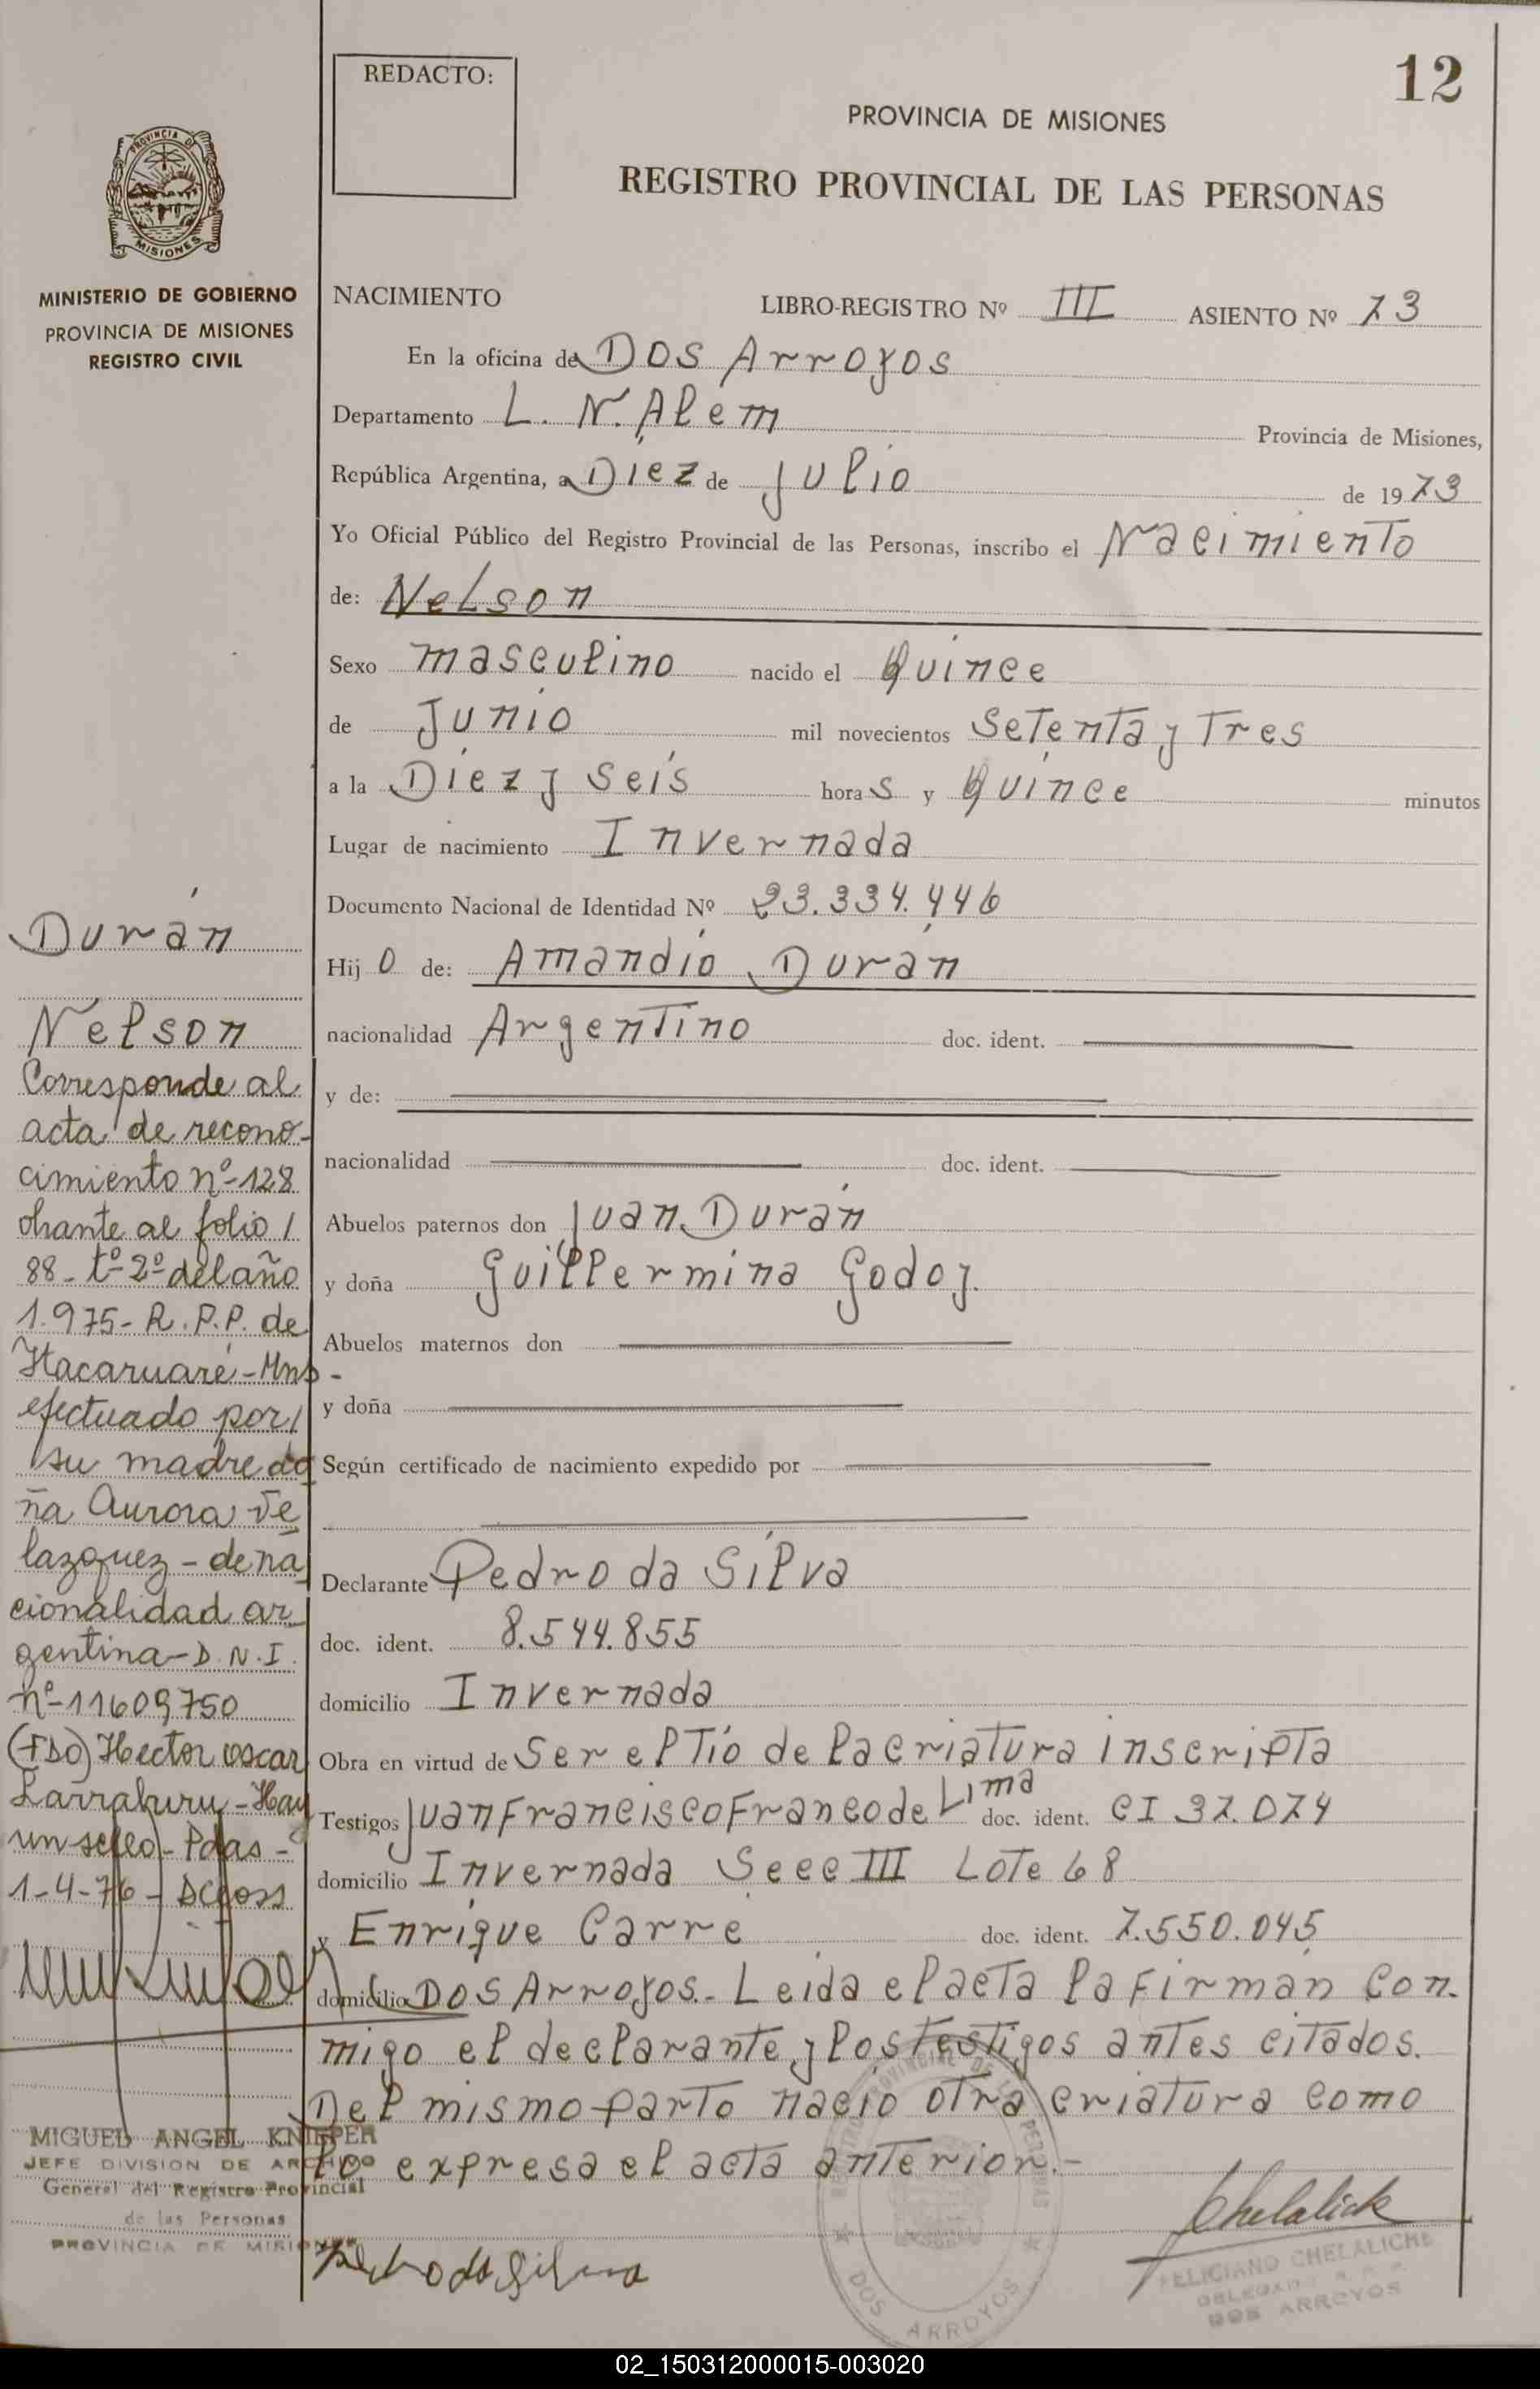 12
REDACTO:
PROVINCIA DE MISIONES
REGISTRO PROVINCIAL DE LAS PERSONAS
PROVINCIA DE
MISIONES
MINISTERIO DE GOBIERNO
PROVINCIA DE MISIONES
REGISTRO CIVIL
NACIMIENTO LIBRO-REGISTRO Nº III ASIENTO Nº 73
En la oficina de Dos Arroyos
Departamento L. N. Alem Provincia de Misiones,
República Argentina, a Diez de Julio de 1973
Yo Oficial Público del Registro Provincial de las Personas, inscribo el Nacimiento
de: Nelson
Sexo masculino nacido el Quince
de Junio mil novecientos Setenta y Tres
a la Diez y Seis horas y Quince minutos
Lugar de nacimiento Invernada
Documento Nacional de Identidad Nº 23.334.446
Hijo de: Amandio Durán
nacionalidad Argentino doc. ident.
y de:
nacionalidad doc. ident.
Abuelos paternos don Juan Durán
y doña Guillermina Godoy.
Abuelos maternos don
y doña
Según certificado de nacimiento expedido por
Declarante Pedro da Silva
doc. ident. 8.544.855
domicilio Invernada
Obra en virtud de Ser el Tío de la criatura inscripta
Testigos Juan Francisco Franco de Lima doc. ident. CI 37.074
domicilio Invernada Secc III Lote 68
y Enrique Carre doc. ident. 7.550.045
domicilio Dos Arroyos.- Leida el acta la firman Con.
migo el declarante y los testigos antes citados.
Del mismo parto nació otra criatura como
lo expresa el acta anterior.-
Durán
Nelson
Corresponde al
acta de recono-
cimiento nº-128
obrante al folio /
88-tº-2º del año
1.975-R.P.P. de
Itacaruaré-Mns-
efectuado por/
su madre do
ña Aurora Ve
lazquez-de na
cionalidad ar
gentina-D.N.I.
nº-11609750
(FDO) Hector Oscar
Larraburu-Hay
un sello-Pdas-
1-4-76-
MIGUEL ANGEL KNIEPER
JEFE DIVISION DE ARCHIVO
General del Registro Provincial
de las Personas
PROVINCIA DE MISIONES
Pedro da Silva
DOS ARROYOS
Chelalick
FELICIANO CHELALICHE
DELEGADO R. P. P.
DOS ARROYOS
02_150312000015-003020